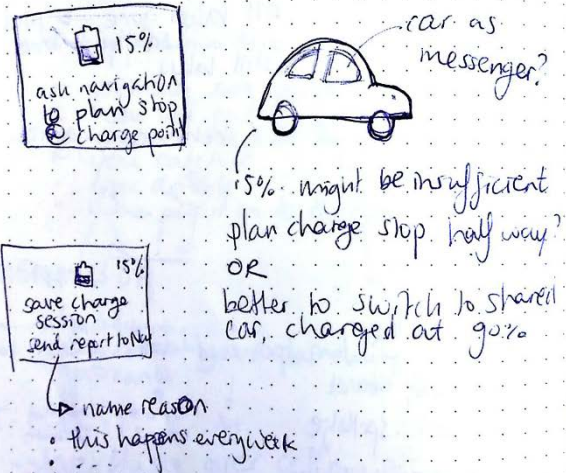 15%
ask navigation
to plan stop
@ charge point
car as
messenger?
15% might be insufficient
plan charge stop half way?
OR
better to switch to shared
car, charged at 90%
15%
save charge
session
send report to Nav
name reason
this happens every week